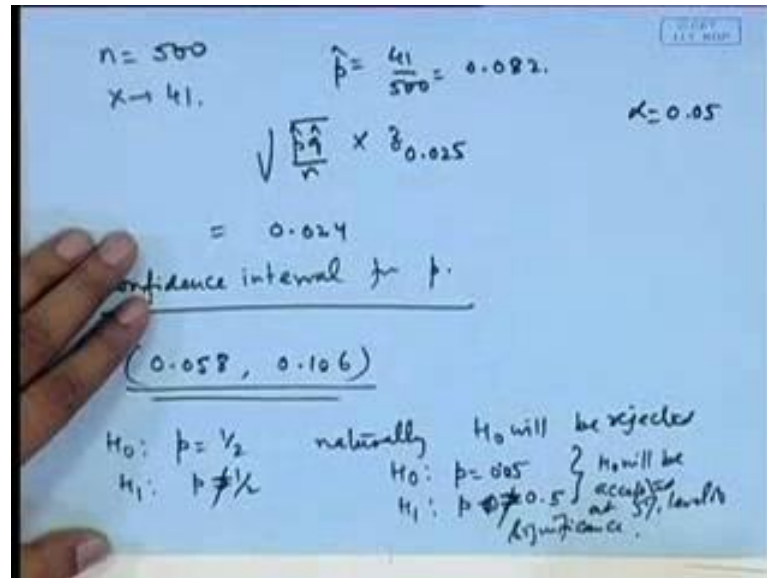 n = 500
p̂ = 41/500 = 0.082.
X → 41.
α = 0.05
√(p̂q̂/n) × z0.025
= 0.024
onfidence interval for p.
(0.058, 0.106)
H0: p = 1/2 naturally H0 will be rejected
H1: p ≠ 1/2
H0: p = 0.05 } H0 will be
H1: p ≠ 0.5 accepted
at 5% level
significance.